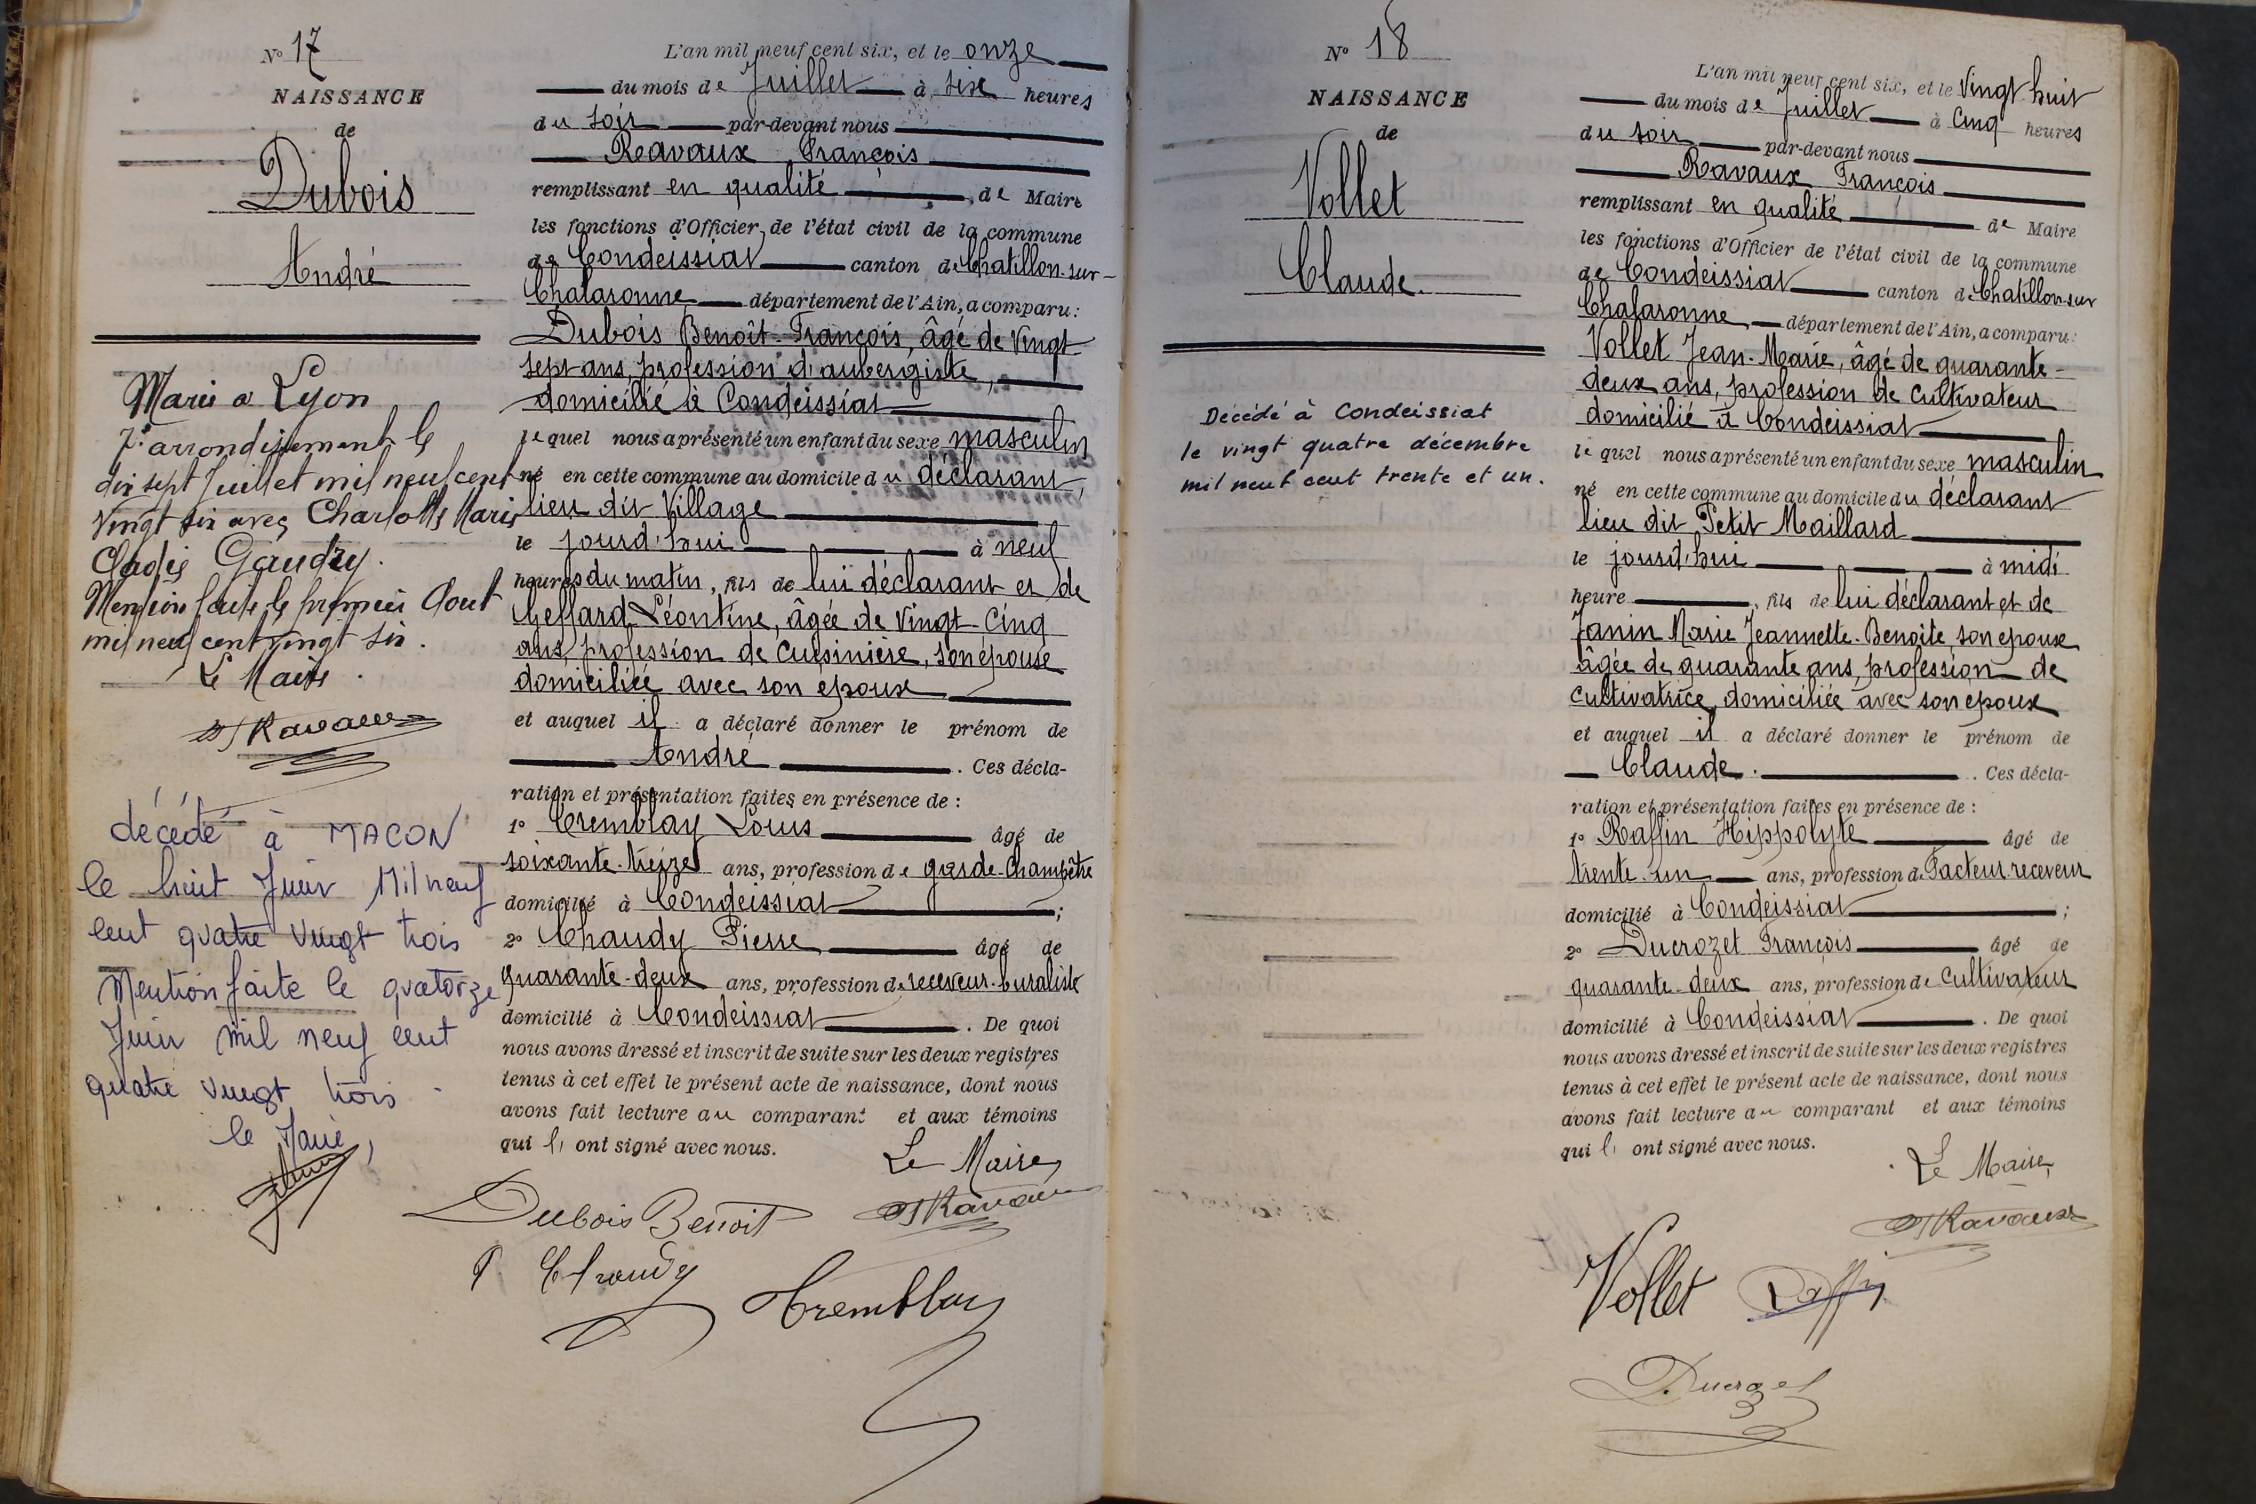 N° 17
NAISSANCE
de
Dubois
André
Marié à Lyon
7e arrondissement le
dix sept Juillet mil neuf cent
vingt six avec Charlotte Marie
Gaudry.
Mention faite le premier Aout
mil neuf cent vingt six.
Le Maire
Ravaux
décédé à MACON
le huit Juin Mil neuf
cent quatre vingt trois
Mention faite le quatorze
Juin mil neuf cent
quatre vingt trois
le Maire,
L'an mil neuf cent six, et le onze
du mois de Juillet à six heures
du soir par-devant nous
Ravaux François
remplissant en qualité de Maire
les fonctions d'Officier de l'état civil de la commune
de Condeissiat canton de Chatillon-sur-
Chalaronne département de l'Ain, a comparu:
Dubois Benoît-François, âgé de vingt
sept ans, profession d'aubergiste,
domicilié à Condeissiat
lequel nous a présenté un enfant du sexe masculin
né en cette commune au domicile du déclarant,
lieu dit Village
le jourd'hui à neuf
heures du matin, fils de lui déclarant et de
Léontine, âgée de vingt-cinq
ans, profession de cuisinière, son épouse
domiciliée avec son époux
et auquel il a déclaré donner le prénom de
André. Ces décla-
ration et présentation faites en présence de :
1° Tremblay Louis âgé de
soixante-treize ans, profession de garde-champêtre
domicilié à Condeissiat;
2° Chaudy Pierre âgé de
quarante-deux ans, profession de receveur-buraliste
domicilié à Condeissiat. De quoi
nous avons dressé et inscrit de suite sur les deux registres
tenus à cet effet le présent acte de naissance, dont nous
avons fait lecture au comparant et aux témoins
qui l'ont signé avec nous.
Le Maire,
Dubois Benoit Ravaux
P Chaudy Tremblay
N° 18
NAISSANCE
de
Vollet
Claude.
Décédé à Condeissiat
le vingt quatre décembre
mil neuf cent trente et un.
L'an mil neuf cent six, et le vingt huit
du mois de Juillet à cinq heures
du soir par-devant nous
Ravaux François
remplissant en qualité de Maire
les fonctions d'Officier de l'état civil de la commune
de Condeissiat canton de Chatillon-sur
Chalaronne, département de l'Ain, a comparu:
Vollet Jean-Marie, âgé de quarante-
deux ans, profession de cultivateur
domicilié à Condeissiat
lequel nous a présenté un enfant du sexe masculin
né en cette commune au domicile du déclarant
lieu dit Petit Maillard
le jourd'hui à midi
heure, fils de lui déclarant et de
Janin Marie Jeannette-Benoite son epouse
âgée de quarante ans, profession de
cultivatrice, domiciliée avec son epoux
et auquel il a déclaré donner le prénom de
Claude. Ces décla-
ration et présentation faites en présence de :
1° Raffin Hippolyte âgé de
trente-un ans, profession de Facteur-receveur
domicilié à Condeissiat;
2° Ducrozet François âgé de
quarante-deux ans, profession de cultivateur
domicilié à Condeissiat. De quoi
nous avons dressé et inscrit de suite sur les deux registres
tenus à cet effet le présent acte de naissance, dont nous
avons fait lecture au comparant et aux témoins
qui l'ont signé avec nous.
Le Maire,
Ravaux
Vollet Raffin
Ducrozet